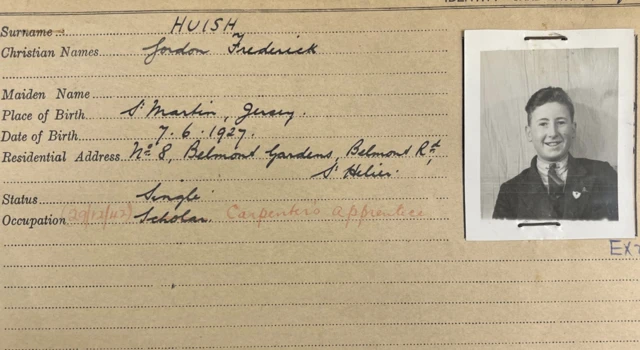 Surname HUISH
Christian Names Gordon Frederick
Maiden Name
Place of Birth St Martin, Jersey.
Date of Birth 7.6.1927.
Residential Address No 8, Belmont Gardens, Belmont Rd,
St Helier.
Status Single.
Occupation 29/12/42) Scholar. Carpenter's apprentice